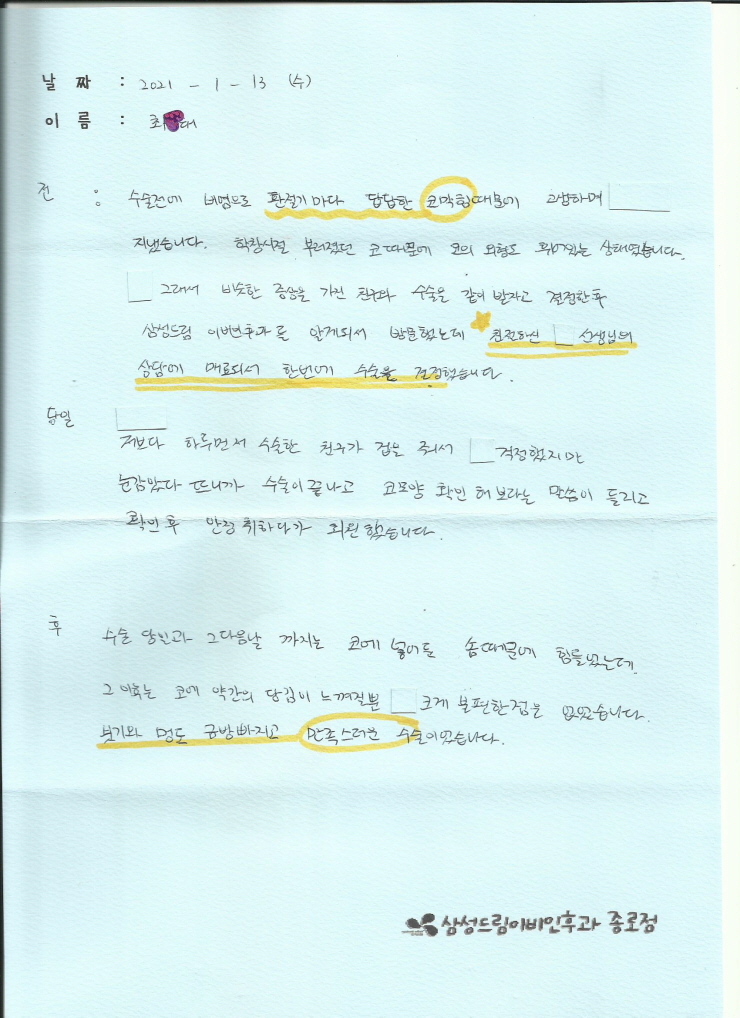 날 짜 : 2021 - 1 - 13 (수)
이 름 : 최 대
전 : 수술전에 비염으로 환절기마다 답답한 코막힘때문에 고생하며
지냈습니다. 학창시절 부러졌던 코때문에 코의 외형도 휘어있는 상태였습니다.
그래서 비슷한 증상을 가진 친구와 수술을 같이 받자고 결정한후
삼성드림 이비인후과를 알게되서 방문했는데 친절하신 선생님의
상담에 매료되서 한번에 수술을 결정했습니다.
당일
저보다 하루먼저 수술한 친구가 겁을 줘서 걱정했지만
눈감았다 뜨니까 수술이 끝나고 코모양 확인 해보라는 말씀이 들리고
확인후 안정취하다가 퇴원했습니다.
후 수술 당일과 그다음날 까지는 코에 넣어둔 솜때문에 힘들었는데
그 이후는 코에 약간의 당김이 느껴질뿐 크게 불편한점은 없었습니다.
붓기와 멍도 금방빠지고 만족스러운 수술이었습니다.
삼성드림이비인후과 종로점